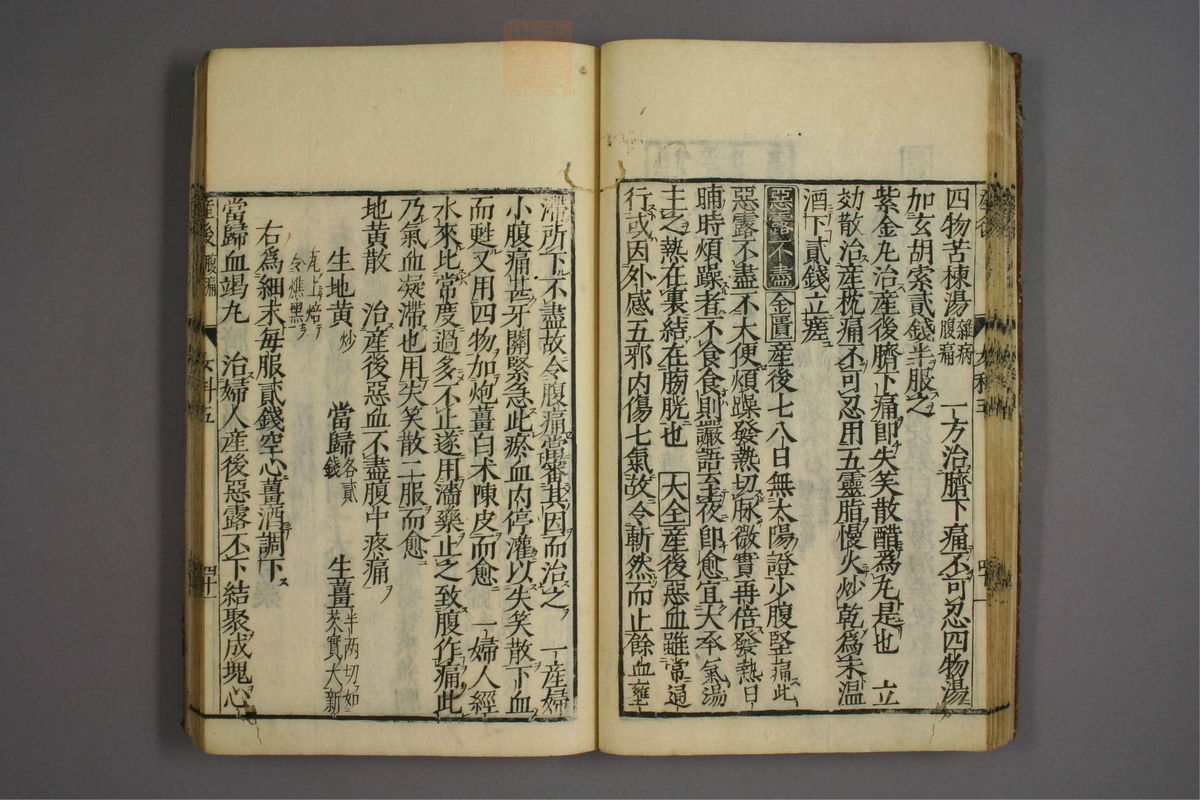 四物苦楝湯雜病腹痛 一方治臍下痛不可忍四物湯
加玄胡索貳錢半服之
紫金丸治產後臍下痛卽失笑散醋爲丸是也 立
効散治產枕痛不可忍用五靈脂慢火炒乾爲末温
酒下貳錢立瘥
惡露不盡 金匱產後七八日無太陽證少腹堅痛此
惡露不盡不大便煩躁發熱切脉微實再倍發熱日
晡時煩躁者不食食則讝語至夜卽愈宜大承氣湯
主之熱在裏結在膀胱也 大全產後惡血雖常通
行或因外感五邪內傷七氣故令斬然而止餘血壅
滯所下不盡故令腹痛當審其因而治之 一產婦
小腹痛甚牙關緊急此瘀血內停灌以失笑散下血
而甦又用四物加炮薑白朮陳皮而愈 一婦人經
水來比常度過多不止遂用濇藥止之致腹作痛此
乃氣血凝滯也用失笑散二服而愈
地黃散 治產後惡血不盡腹中疼痛
生地黃炒 當歸各貳錢 生薑半两切如芡實大新
瓦上焙令燋黑
右爲細末每服貳錢空心薑酒調下
當歸血竭丸 治婦人產後惡露不下結聚成塊心
產後腹痛 女科五 四十一